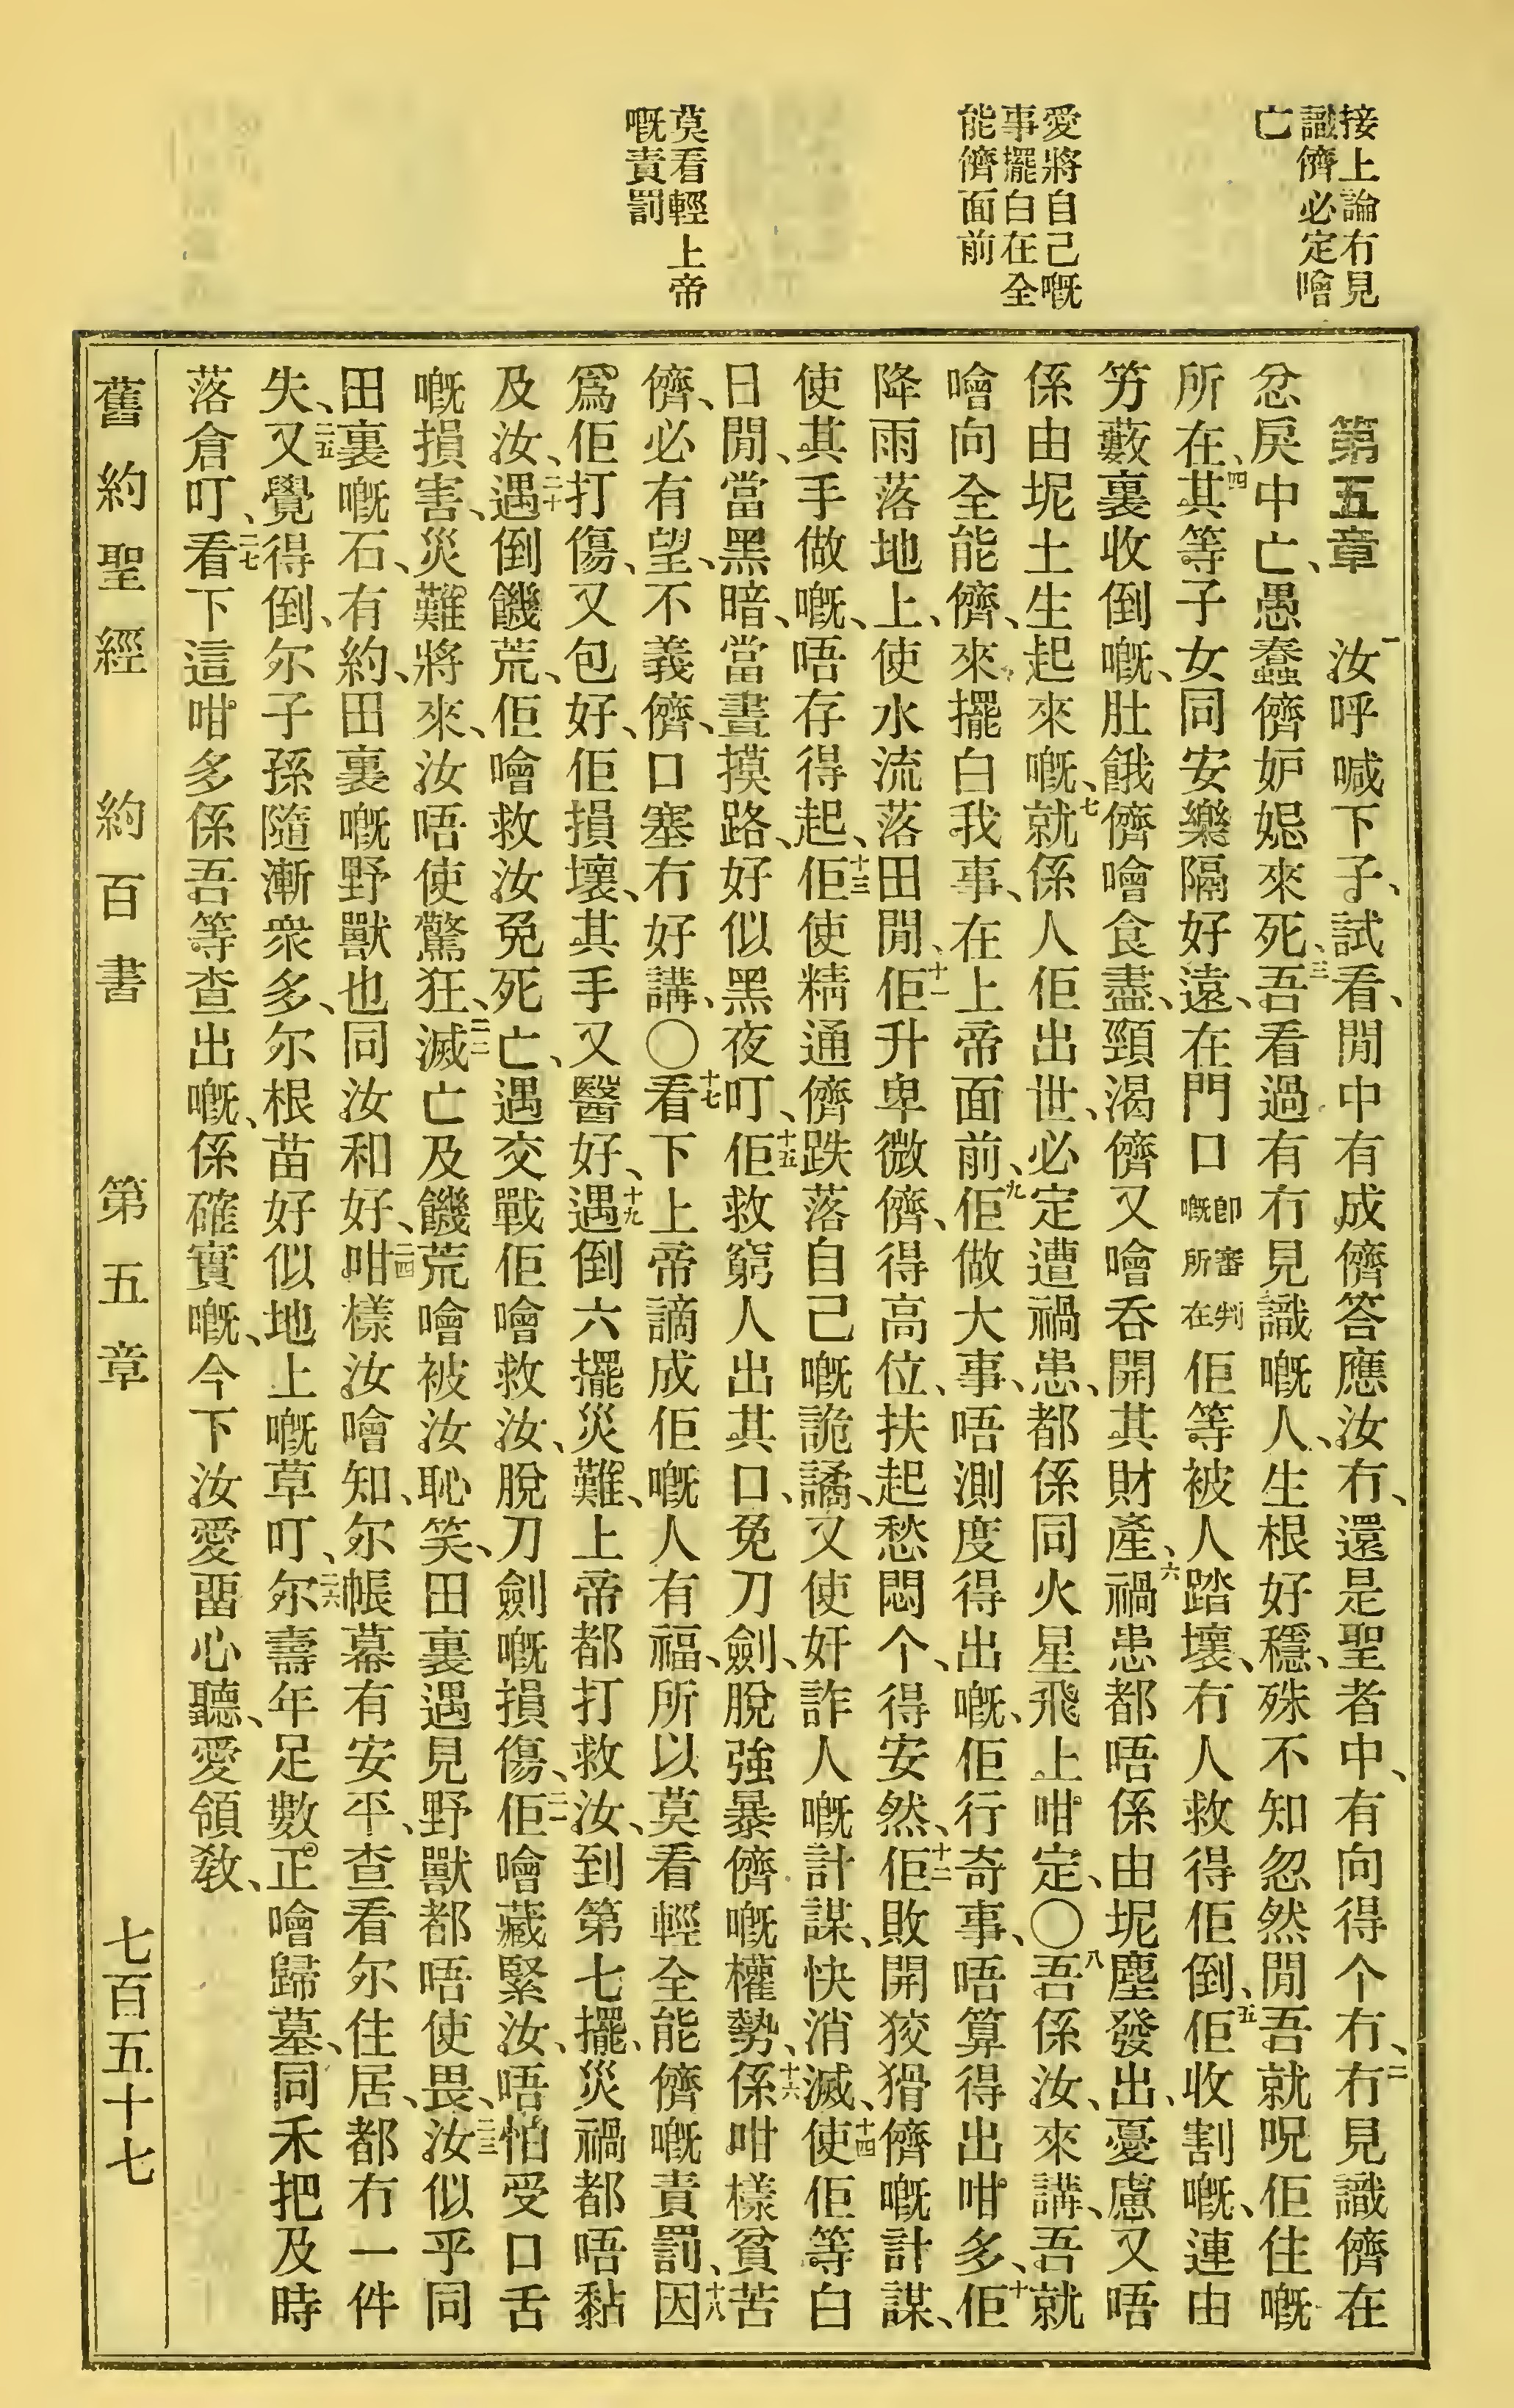 接上論冇見
識儕必定噲
亡
愛將自己嘅
事擺白在全
能儕面前
莫看輕上帝
嘅責罰
第五章 一汝呼喊下子、試看、閒中有成儕答應汝冇、還是聖者中、有向得个冇、二冇見識儕在
忿戾中亡、愚蠢儕妒𡞰來死、三吾看過有冇見識嘅人、生根好穩、殊不知忽然閒吾就呪佢住嘅
所在、四其等子女同安樂隔好遠、在門口卽審判嘅所在佢等被人踏壞、冇人救得佢倒、五佢收割嘅、連由
竻藪裏收倒嘅、肚餓儕噲食盡、頸渴儕又噲吞開其財產、六禍患都唔係由坭塵發出、憂慮又唔
係由坭土生起來嘅、七就係人佢出世、必定遭禍患、都係同火星飛上咁定、〇八吾係汝、來講、吾就
噲向全能儕、來擺白我事、在上帝面前、九佢做大事、唔測度得出嘅、佢行奇事、唔算得出咁多、十佢
降雨落地上、使水流落田閒、十一佢升卑微儕、得高位、扶起愁悶个、得安然、十二佢敗開狡猾儕嘅計謀、
使其手做嘅、唔存得起、十三佢使精通儕跌落自己嘅詭譎、又使奸詐人嘅計謀、快消滅、十四使佢等白
日閒、當黑暗、當晝摸路、好似黑夜叮、十五佢救窮人出其口、免刀劍、脫強暴儕嘅權勢、十六係咁樣貧苦
儕、必有望、不義儕、口塞冇好講、〇十七看下上帝謫成佢嘅人有福、所以莫看輕全能儕嘅責罰、十八因
爲佢打傷、又包好、佢損壞、其手又醫好、十九遇倒六擺災難、上帝都打救汝、到第七擺、災禍都唔黏
及汝、二十遇倒饑荒、佢噲救汝免死亡、遇交戰佢噲救汝、脫刀劍嘅損傷、二一佢噲藏緊汝、唔怕受口舌
嘅損害、災難將來、汝唔使驚狂、二二滅亡及饑荒噲被汝恥笑、田裏遇見野獸都唔使畏、二三汝似乎同
田裏嘅石、有約、田裏嘅野獸也同汝和好、二四咁樣汝噲知、尔帳幕有安平、查看尔住居、都冇一件
失、二五又覺得倒、尔子孫隨漸衆多、尔根苗好似地上嘅草叮、二六尔壽年足數正噲歸墓、同禾把及時
落倉叮、二七看下這咁多係吾等查出嘅、係確實嘅、今下汝愛畱心聽、愛領敎、
舊約聖經 約百書 第五章 七百五十七